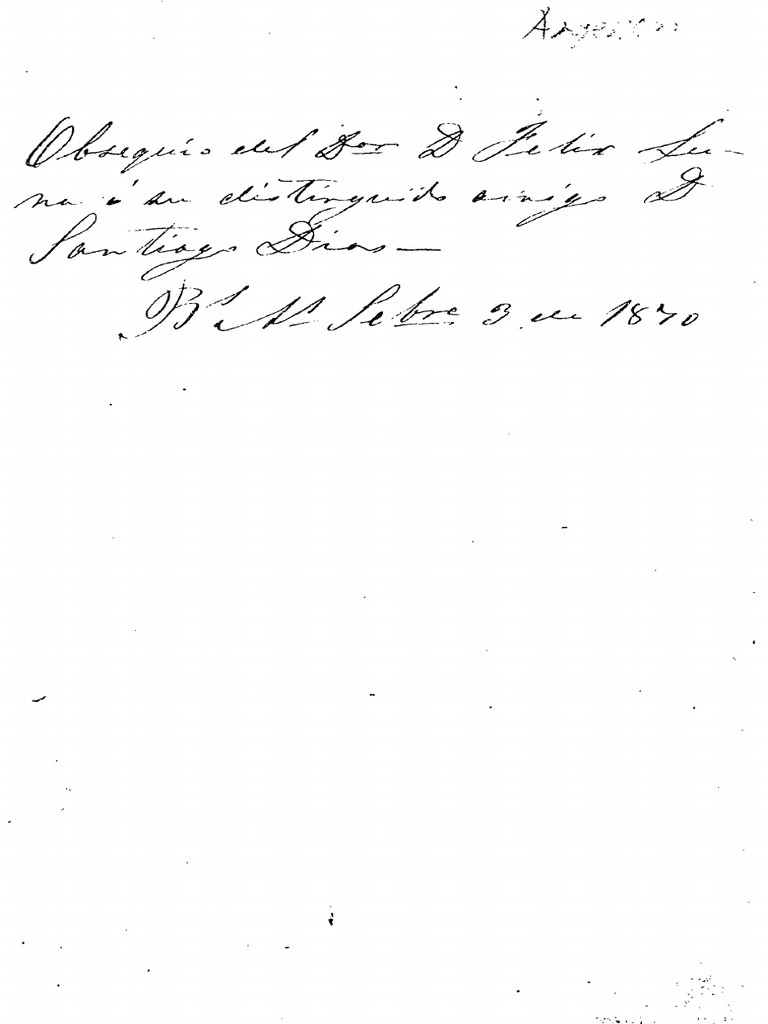 Obsequio del Dor D Felix Lu-
na á su distinguido amigo D
Santiago Dias—
Bs As Sebre 3 de 1870